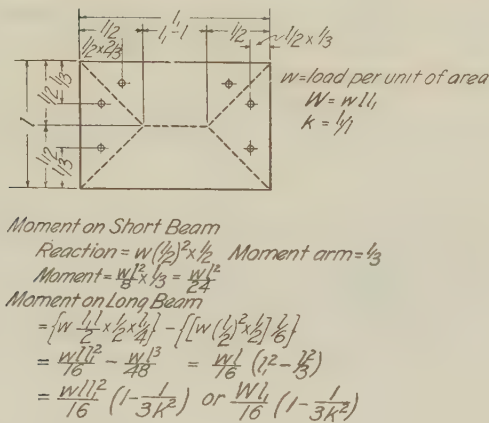 l₁
l/2 l₁-l l/2 l/2 x l/3
l/2 x 2/3
l/2 l/3
l
l/2 l/3
w=load per unit of area
W = wll₁
k = l₁/l
Moment on Short Beam
Reaction = w(l/2)² x l/2 Moment arm = l/3
Moment = wl²/8 x l/3 = wl²/24
Moment on Long Beam
= {w l₁l/2 x l/2 x l₁/4} - {[w(l/2)² x l/2] l/6}
= wll₁²/16 - wl³/48 = wl/16 (l₁² - l²/3)
= wll₁²/16 (1 - 1/3k²) or Wl₁/16 (1 - 1/3k²)